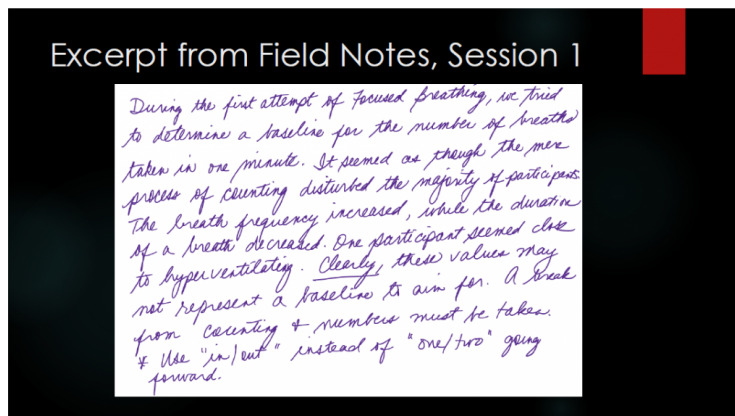 Excerpt from Field Notes, Session 1
During the first attempt of Focused Breathing, we tried
to determine a baseline for the number of breaths
taken in one minute. It seemed as though the mere
process of counting disturbed the majority of participants.
The breath frequency increased, while the duration
of a breath decreased. One participant seemed close
to hyperventilating. Clearly, these values may
not represent a baseline to aim for. A break
from counting & numbers must be taken.
* Use "in/out" instead of "one/two" going
forward.